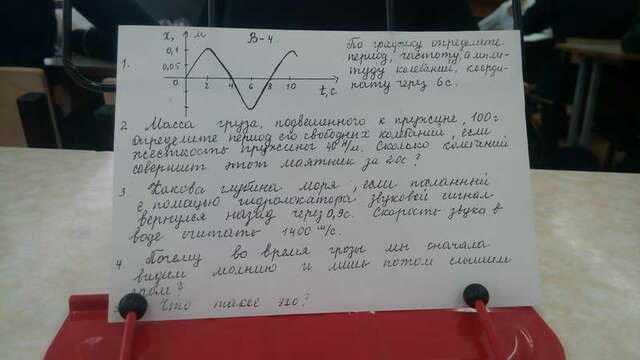 В-4.
x, м
0,1
0,05
0
2 4 6 8 10
t, с
1.
По графику определите
период, частоту, ампли-
туду колебаний, коорди-
нату через 6с.
2 Масса груза, подвешенного к пружине, 100г
Определите период его свободных колебаний, если
жесткость пружины 40 н/м. Сколько колебаний
совершит этот маятник за 20с?
3 Какова глубина моря, если посланный
с помощью гидролокатора звуковой сигнал
вернулся назад через 0,9с. Скорость звука в
воде считать 1400 м/с.
4 Почему во время грозы мы сначала
видим молнию и лишь потом слышим
гром?
Что такое эхо?